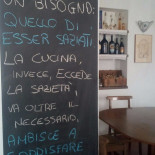 UN BISOGNO:
QUELLO DI
ESSER SAZIATI.
LA CUCINA,
INVECE, ECCEDE
LA SAZIETÀ,
VA OLTRE IL
NECESSARIO,
AMBISCE A
SODDISFARE